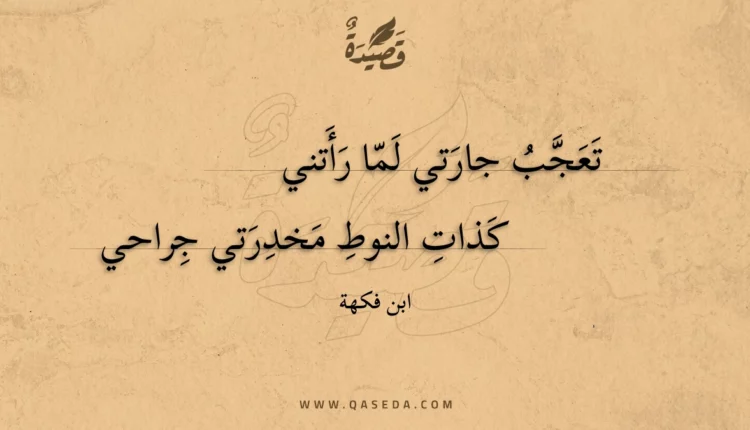 قَصِيدَةٌ
تَعَجَّبُ جارَتي لَمّا رَأَتني
كَذاتِ النوطِ مَخدِرَتي جِراحي
ابن فكهة
WWW.QASEDA.COM